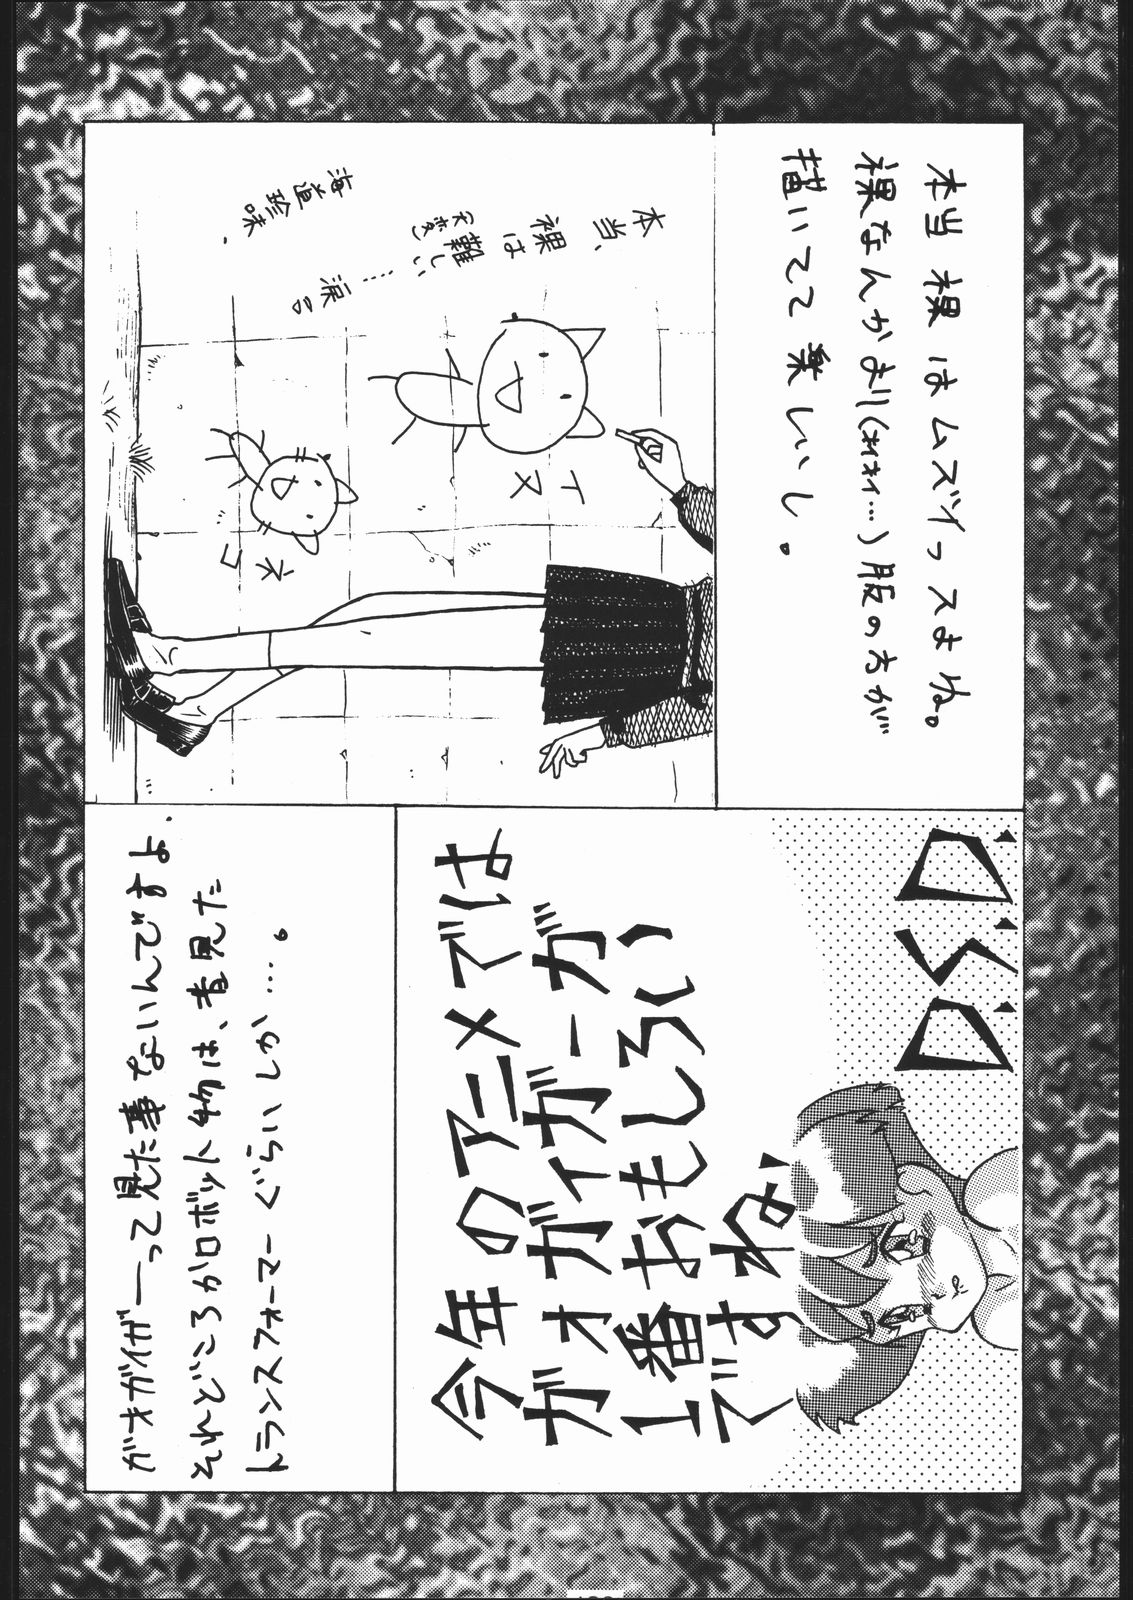 本当裸はムズイっスよね。
裸なんかより(オイオイ…)服の方が
描いてて楽しいし。
本当、
裸は
(大変)
難しい……
涙
海道珍味.
イヌ
ネコ
D.S.D.
今年のアニメでは
ガオガイガーが
1番おもしろい
ですね
ガオガイガーって見た事ないんですよ.
それどころかロボット物は、昔見た
トランスフォーマーぐらいしか…。